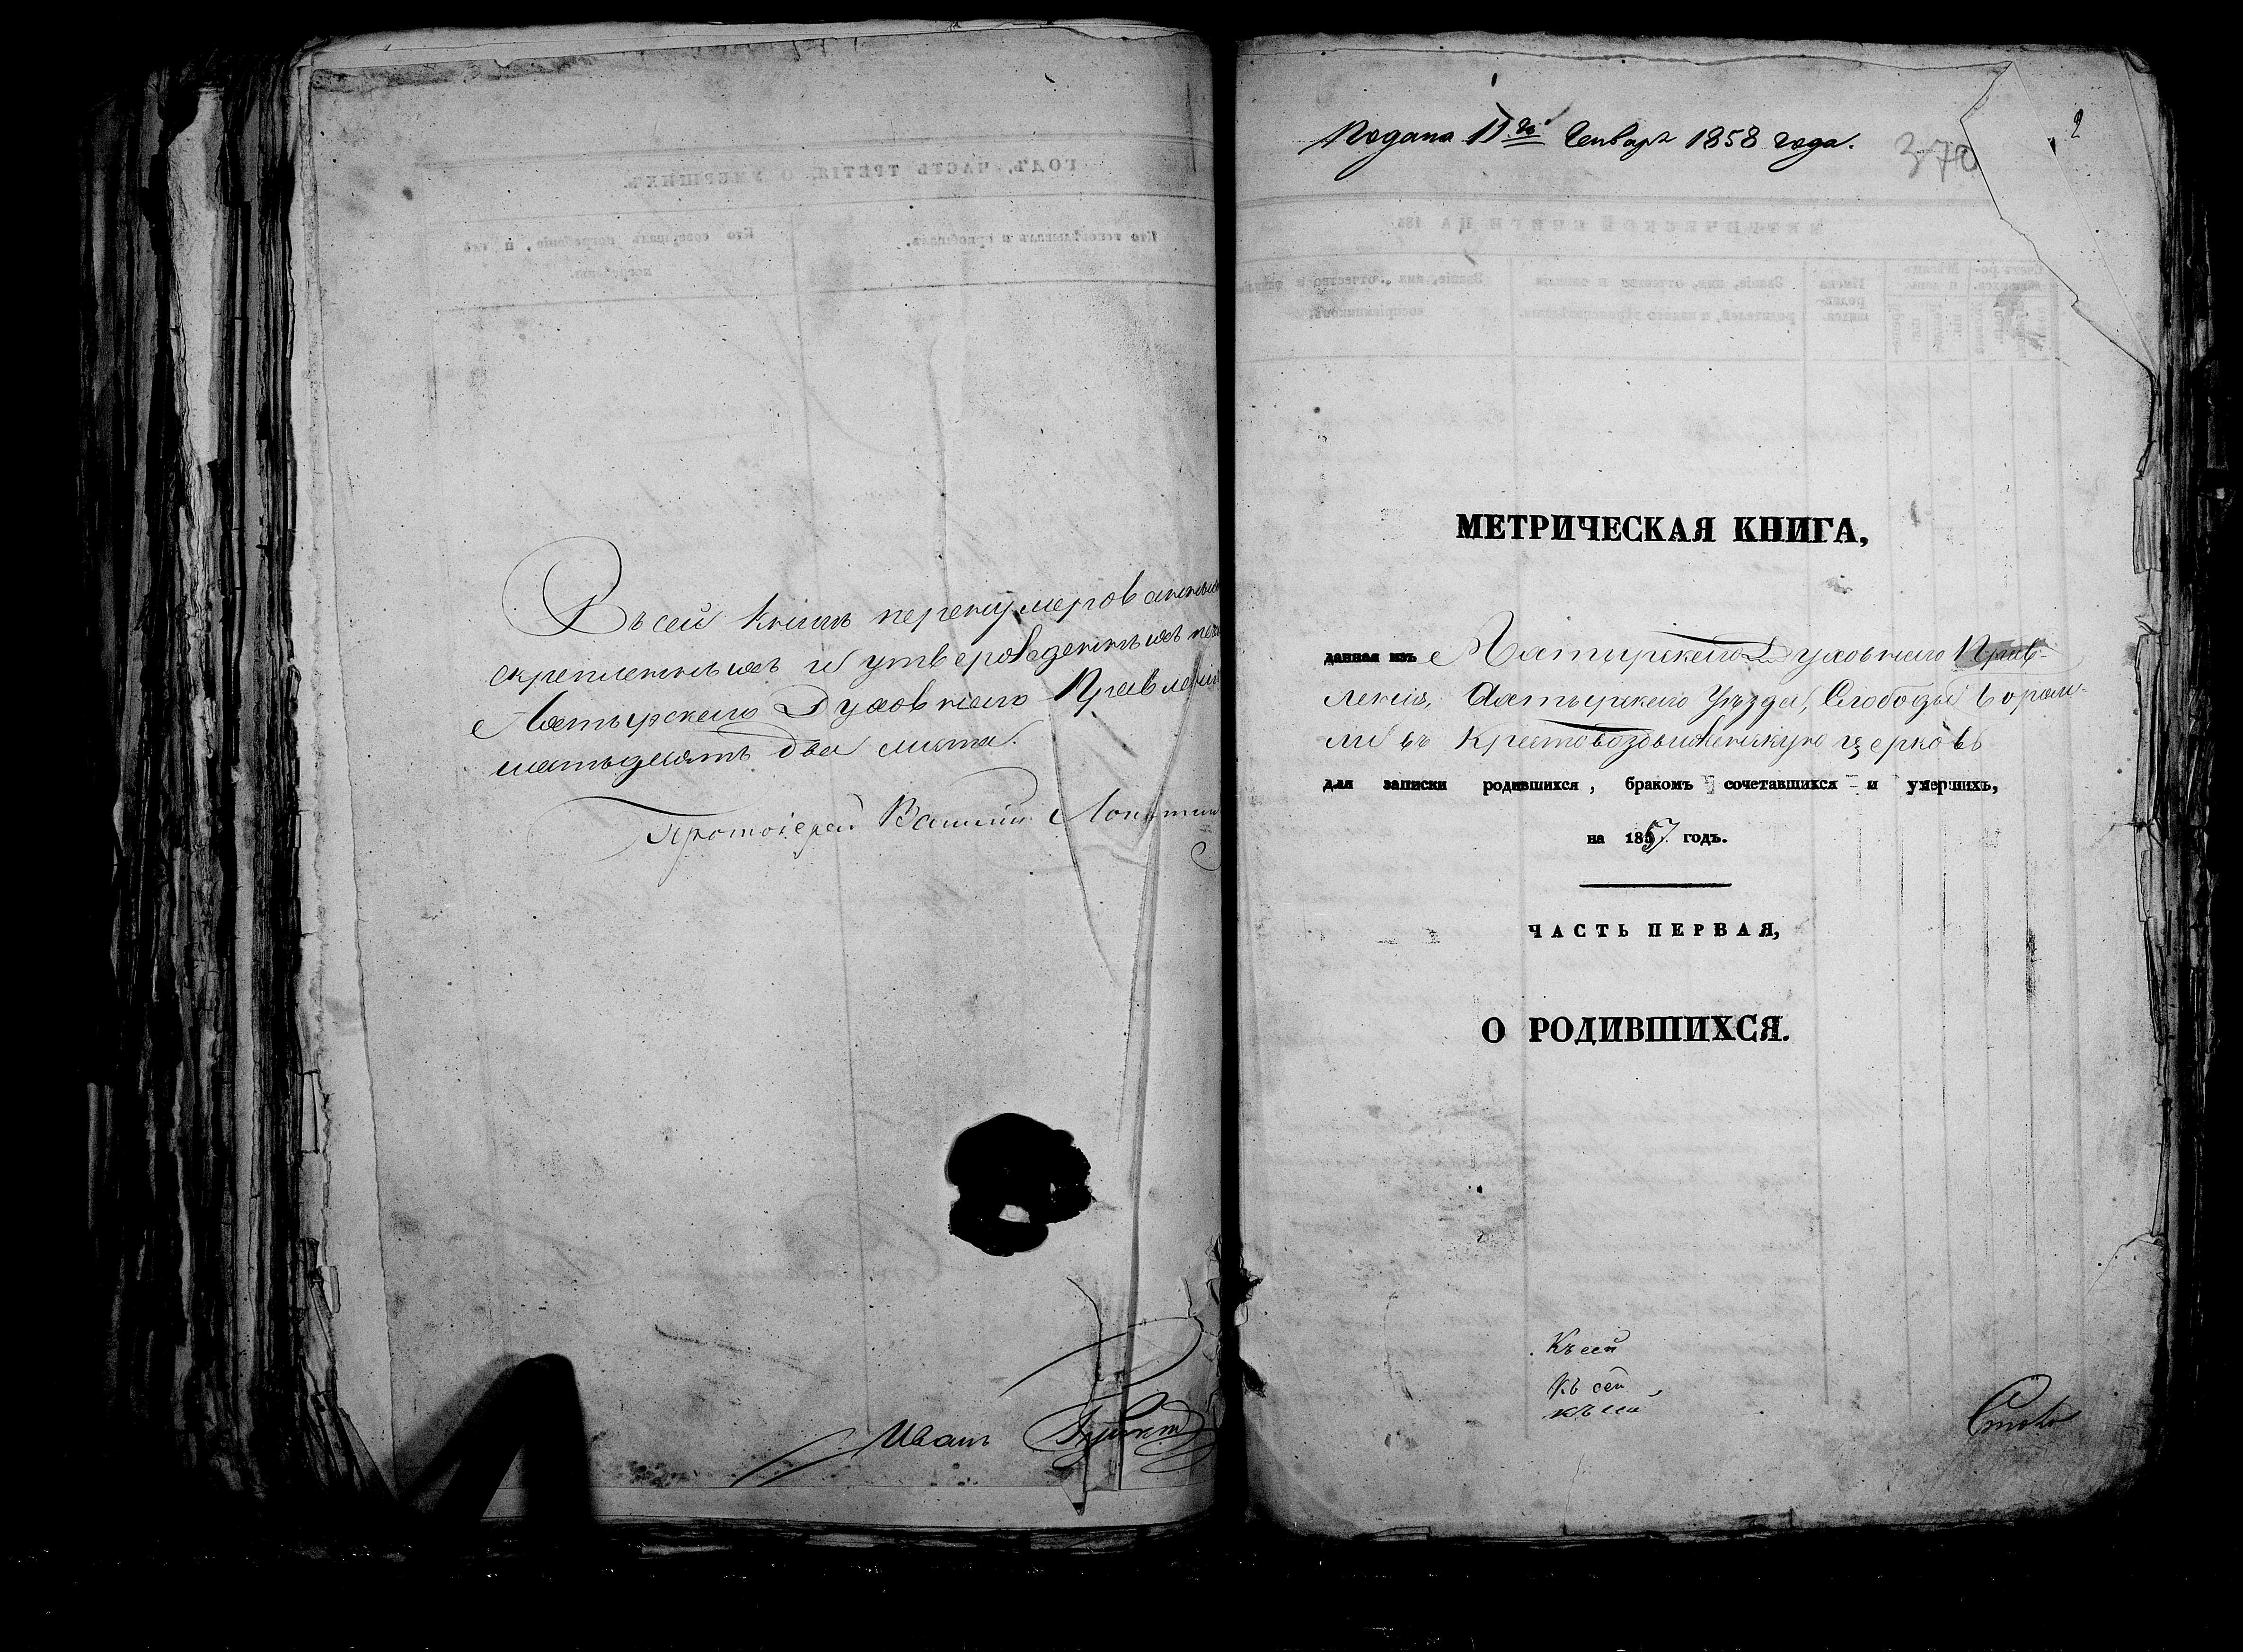 Въ сей книгѣ перенумерованныхъ
скрепленныхъ и утвержденныхъ
Ахтырскаго Духовнаго Правленія
шестьдесятъ два листа.
Протоіерей Василій
Иванъ
Подана 11го Генваря 1858 года.
370
2
МЕТРИЧЕСКАЯ КНИГА,
данная изъ Ахтырскаго Духовнаго Прав-
ленія, Ахтырскаго Уѣзда, Слободы Бором-
ли въ Крестовоздвиженскую церковь
для записки родившихся, бракомъ сочетавшихся и умершихъ,
на 1857 годъ.
ЧАСТЬ ПЕРВАЯ,
О РОДИВШИХСЯ.
Къ сей
Къ сей
къ сей